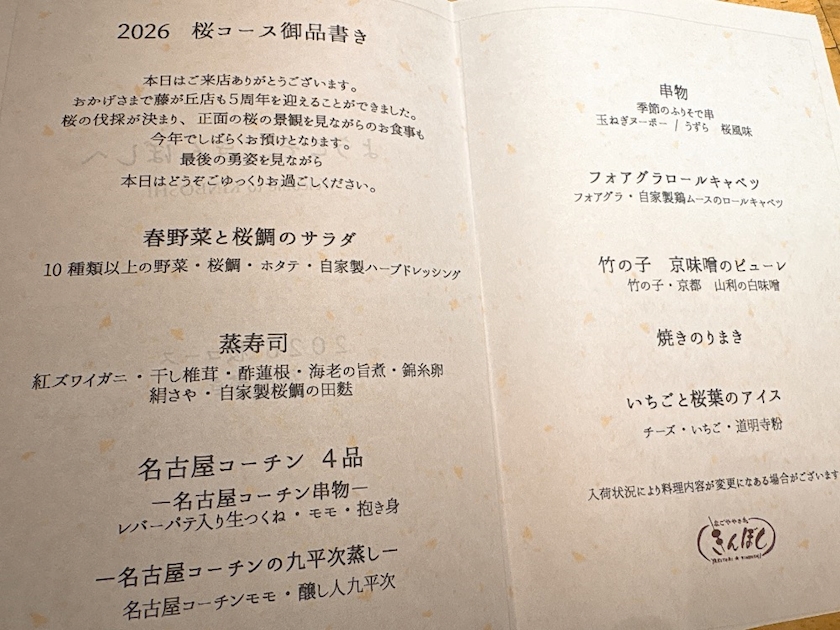 2026 桜コース御品書き
本日はご来店ありがとうございます。
おかげさまで藤が丘店も5周年を迎えることができました。
桜の伐採が決まり、正面の桜の景観を見ながらのお食事も
今年でしばらくお預けとなります。
最後の勇姿を見ながら
本日はどうぞごゆっくりお過ごしください。
春野菜と桜鯛のサラダ
10種類以上の野菜・桜鯛・ホタテ・自家製ハーブドレッシング
蒸寿司
紅ズワイガニ・干し椎茸・酢蓮根・海老の旨煮・錦糸卵
絹さや・自家製桜鯛の田麩
名古屋コーチン 4品
―名古屋コーチン串物―
レバーパテ入り生つくね・モモ・抱き身
―名古屋コーチンの九平次蒸し―
名古屋コーチンモモ・醸し人九平次
串物
季節のふりそで串
玉ねぎヌーボー / うずら 桜風味
フォアグラロールキャベツ
フォアグラ・自家製鶏ムースのロールキャベツ
竹の子 京味噌のピューレ
竹の子・京都 山利の白味噌
焼きのりまき
いちごと桜葉のアイス
チーズ・いちご・道明寺粉
入荷状況により料理内容が変更になある場合がございます
きんぼし